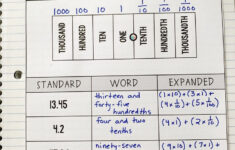 1000 100 10 1 1/10 1/100 1/1000
THOUSAND HUNDRED TEN ONE TENTH HUNDREDTH THOUSANDTH
STANDARD WORD EXPANDED
13.45 thirteen and forty-five hundredths (1×10)+(3×1)+
(4×1/10)+(5×1/100)
4.2 four and two tenths (4×1)+(2×1/10)
ninety-seven (9×10)+(7×1)+